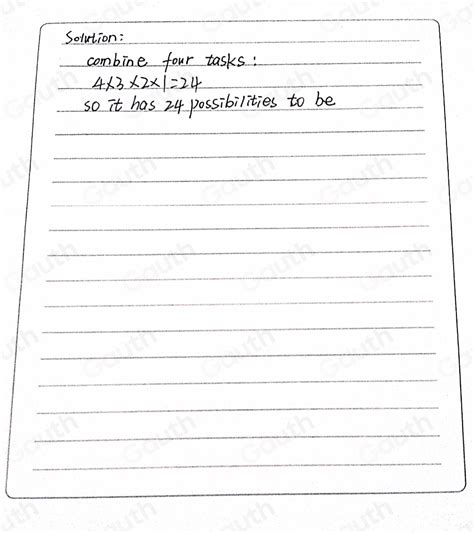 Solution:
combine four tasks:
4×3×2×1=24
so it has 24 possibilities to be